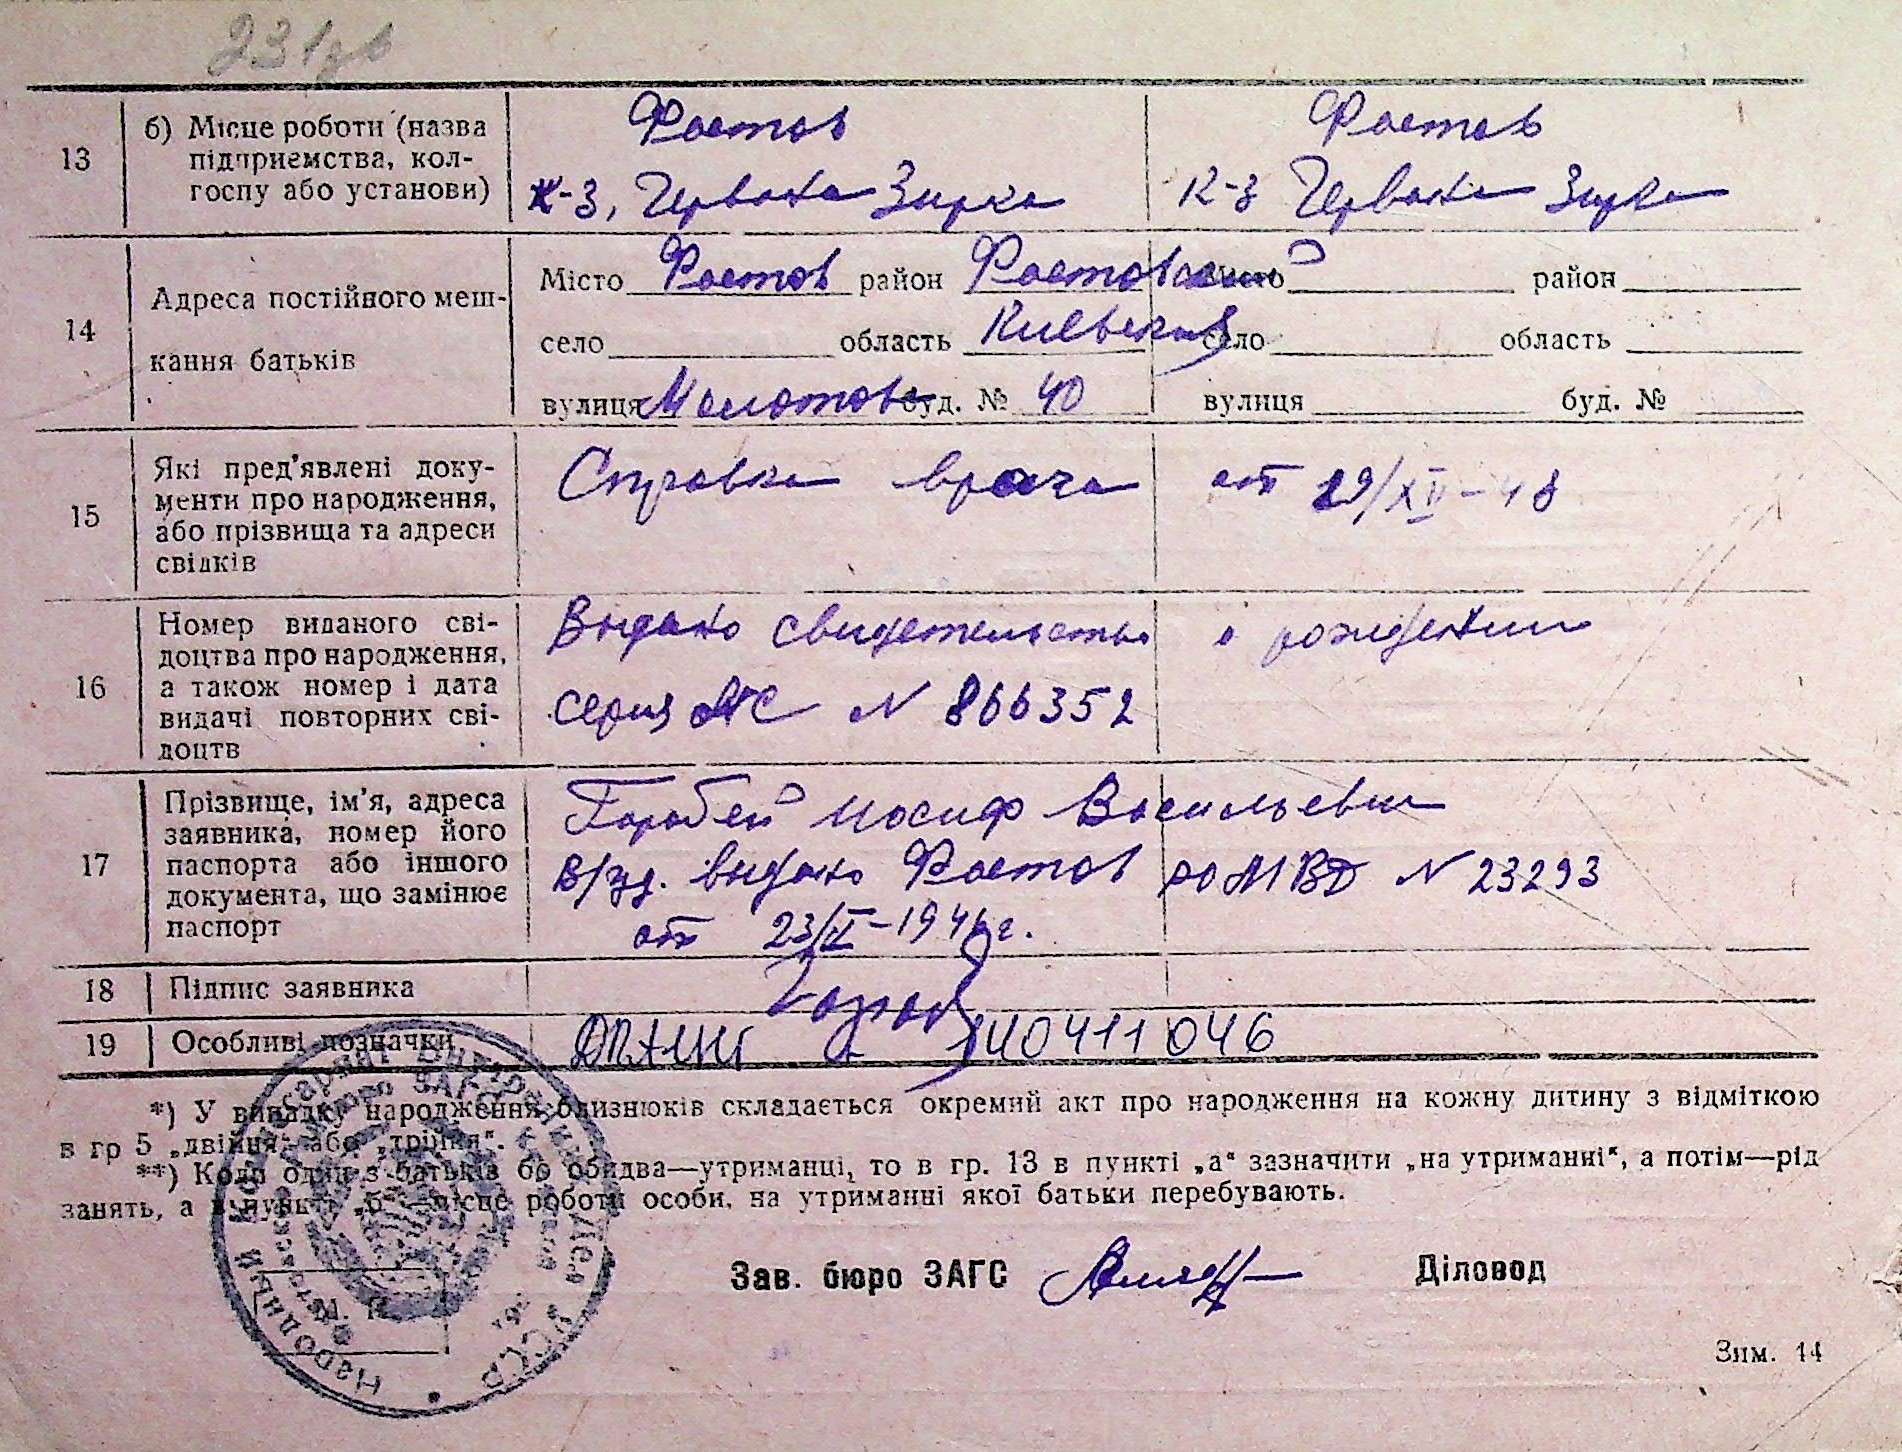 231
13
б) Місце роботи (назва
підприємства, кол-
госпу або установи)
Фастов
К-З, Червона Зирка
Фастов
К-З Червона Зирка
14
Адреса постійного меш-
кання батьків
Місто Фастов район Фастовский
село область Киевская
вулиця Молотова буд. № 40
Місто район
село область
вулиця буд. №
15
Які пред'явлені доку-
менти про народження,
або прізвища та адреси
свідків
Справка врача от 29/XII-48
16
Номер виданого сві-
доцтва про народження,
а також номер і дата
видачі повторних сві-
доцтв
Выдано свидетельство о рождении
серия N 866352
17
Прізвище, ім'я, адреса
заявника, номер його
паспорта або іншого
документа, що замінює
паспорт
Горобей Иосиф Васильевич
выдано Фастов РО МВД N 23293
от 23/ -194 г.
18
Підпис заявника
19
Особливі позначки
140411046
*) У випадку народження близнюків складається окремий акт про народження на кожну дитину з відміткою
в гр 5 „двійня“ або „трійня“.
**) Коли один з батьків бо обидва—утриманці, то в гр. 13 в пункті „а“ зазначити „на утриманні“, а потім—рід
занять, а в пункті „б“—місце роботи особи, на утриманні якої батьки перебувають.
Народный Комиссариат Внутренних Дел УССР
бюро ЗАГС
Зав. бюро ЗАГС
Діловод
Зим. 14